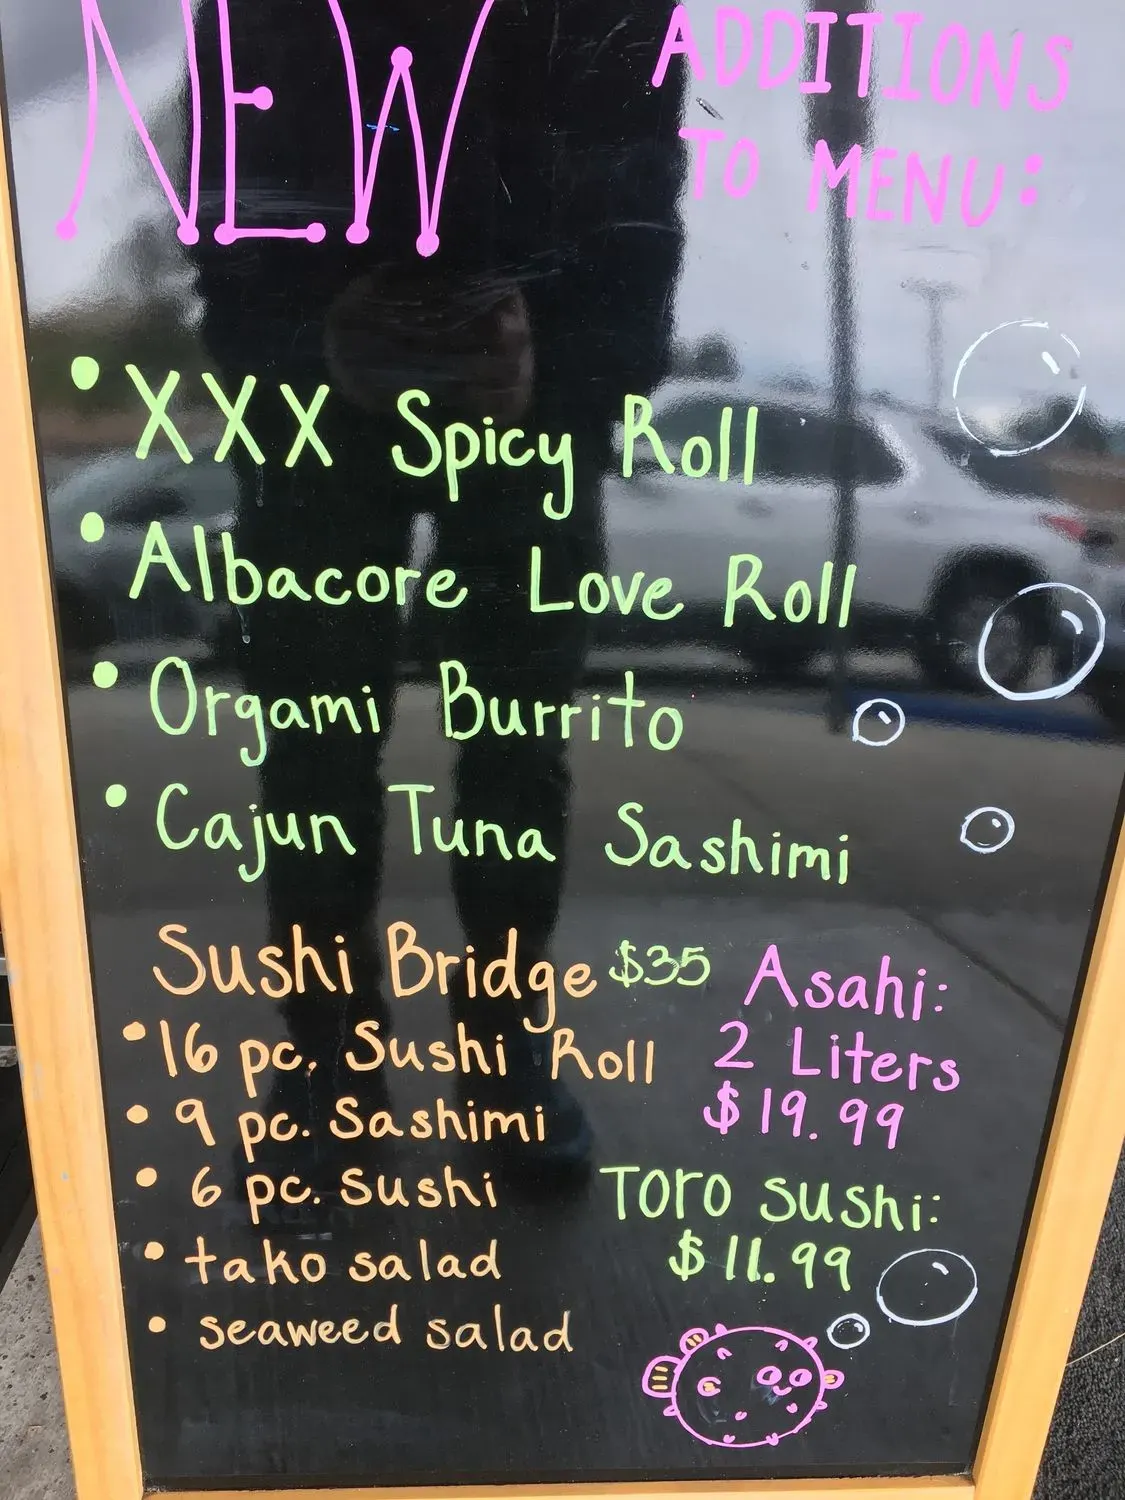 NEW
ADDITIONS
TO MENU:
• XXX Spicy Roll
• Albacore Love Roll
• Orgami Burrito
• Cajun Tuna Sashimi
Sushi Bridge $35
• 16 pc. Sushi Roll
• 9 pc. Sashimi
• 6 pc. Sushi
• tako salad
• seaweed salad
Asahi:
2 Liters
$19.99
Toro sushi:
$11.99